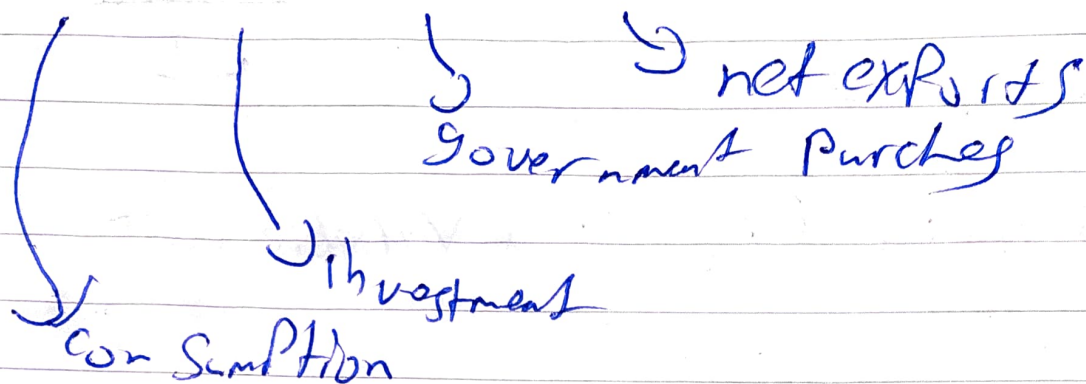 net exports
government Purches
investment
consumption